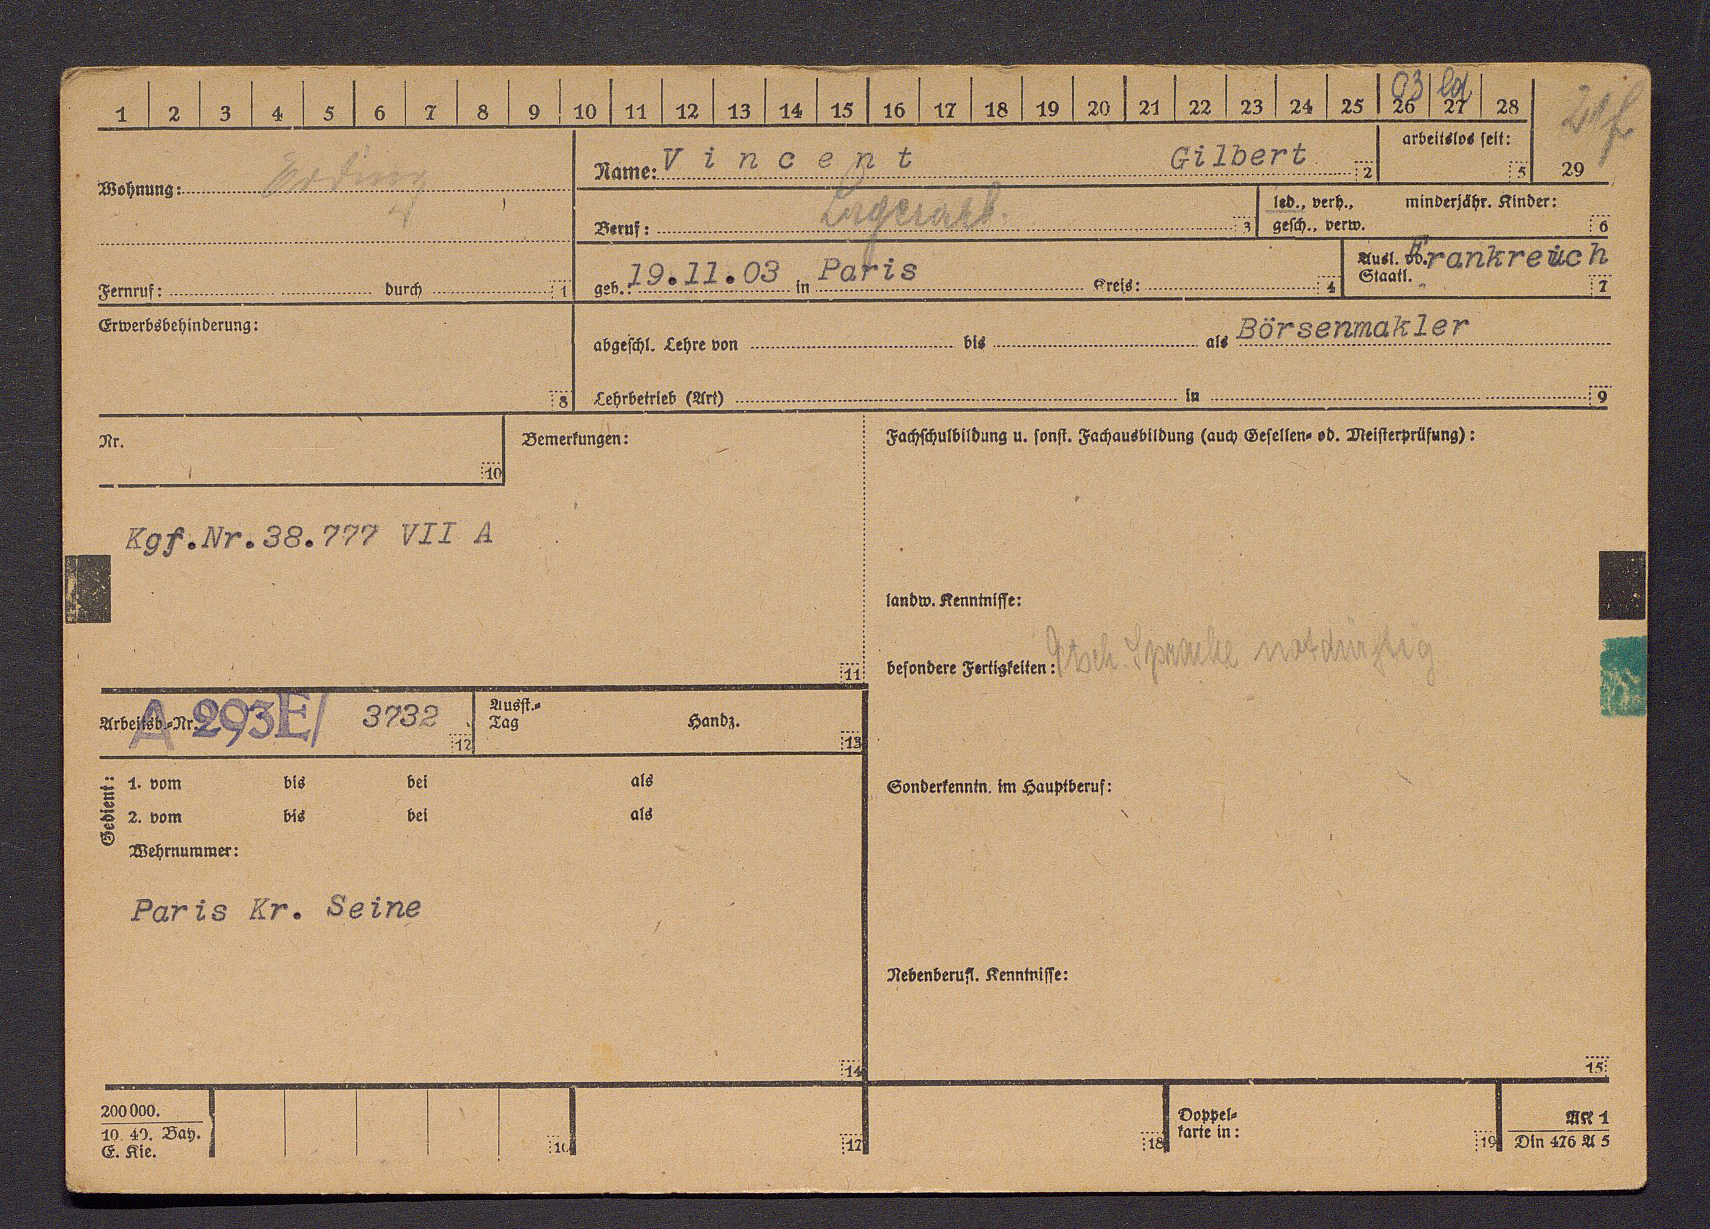 1 2 3 4 5 6 7 8 9 10 11 12 13 14 15 16 17 18 19 20 21 22 23 24 25 26 27 28
03 led
29
Wohnung: Erding
Name: Vincent Gilbert 2
arbeitslos seit: 5
Beruf: Lagerarb. 3
led., verh., gesch., verw.
minderjähr. Kinder: 6
Fernruf: durch 1
geb.: 19.11.03 in Paris Kreis: 4
Ausl. od. Staatl. Frankreich 7
Erwerbsbehinderung: 8
abgeschl. Lehre von bis als Börsenmakler
Lehrbetrieb (Art) in 9
Nr. 10
Bemerkungen:
Fachschulbildung u. sonst. Fachausbildung (auch Gesellen- od. Meisterprüfung):
Kgf.Nr.38.777 VII A
landw. Kenntnisse:
besondere Fertigkeiten: Dtsch. Sprache notdürftig
11
Arbeitsb.-Nr. A 293E/ 3732 12
Ausst.-Tag Handz. 13
Gedient:
1. vom bis bei als
2. vom bis bei als
Wehrnummer:
Sonderkenntn. im Hauptberuf:
Paris Kr. Seine
Nebenberufl. Kenntnisse:
14
15
200 000.
10. 40. Bay.
E. Kie.
16
17
18
Doppel-
karte in: 19
AK 1
Din 476 A 5